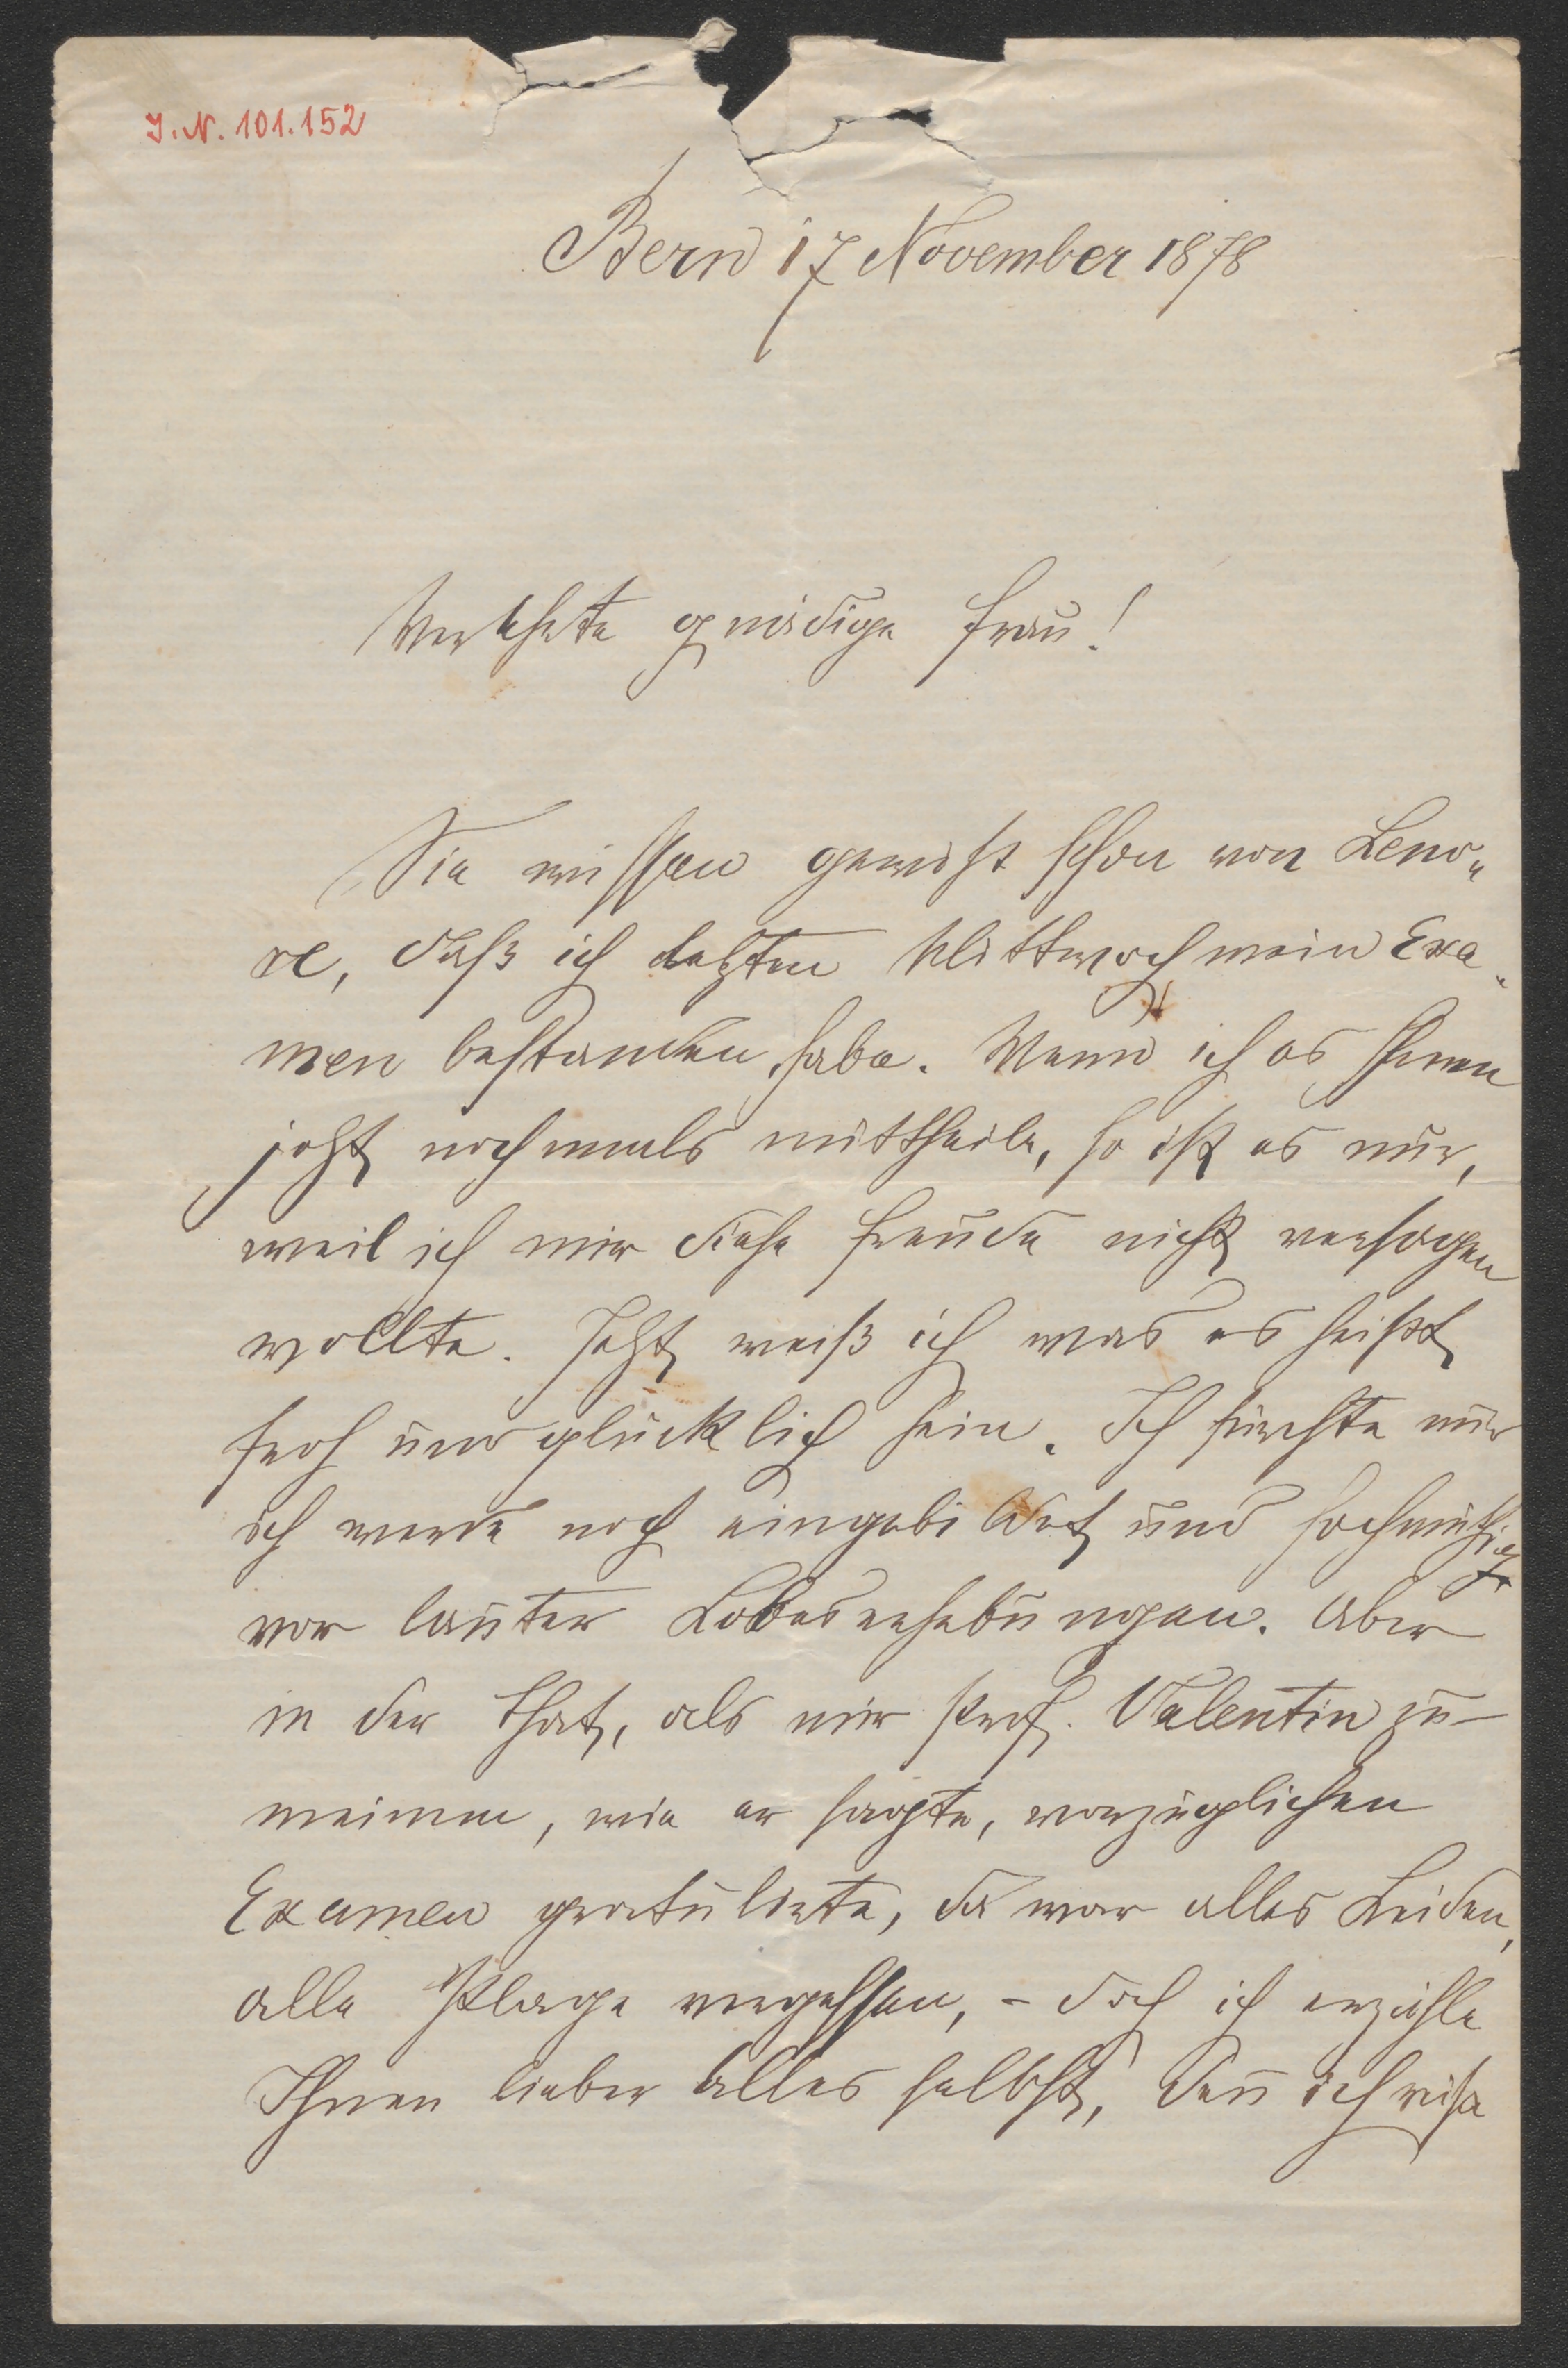 J. N. 101.152
Bern 17 November 1878
Verehrte gnädige Frau!
Sie wissen gewiß schon von Leno-
re, daß ich letzten Mittwoch mein Exa-
men bestanden habe. Wenn ich es Ihnen
jetzt nochmals mittheile, so ist es nur,
weil ich mir diese Freude nicht versagen
wollte. Jetzt weiß ich was es heißt
froh und glücklich sein. Ich fürchte nur
ich werde noch eingebildet und hochmüthig
vor lauter Lobeserhebungen. Aber
in der That, als mir Prof. Valentin zu
meinem, wie er sagte, vorzüglichen
Examen gratulirte, da war alles Leiden,
alle Plage vergessen, – doch ich erzähle
Ihnen lieber alles selbst, den̅ ich reise